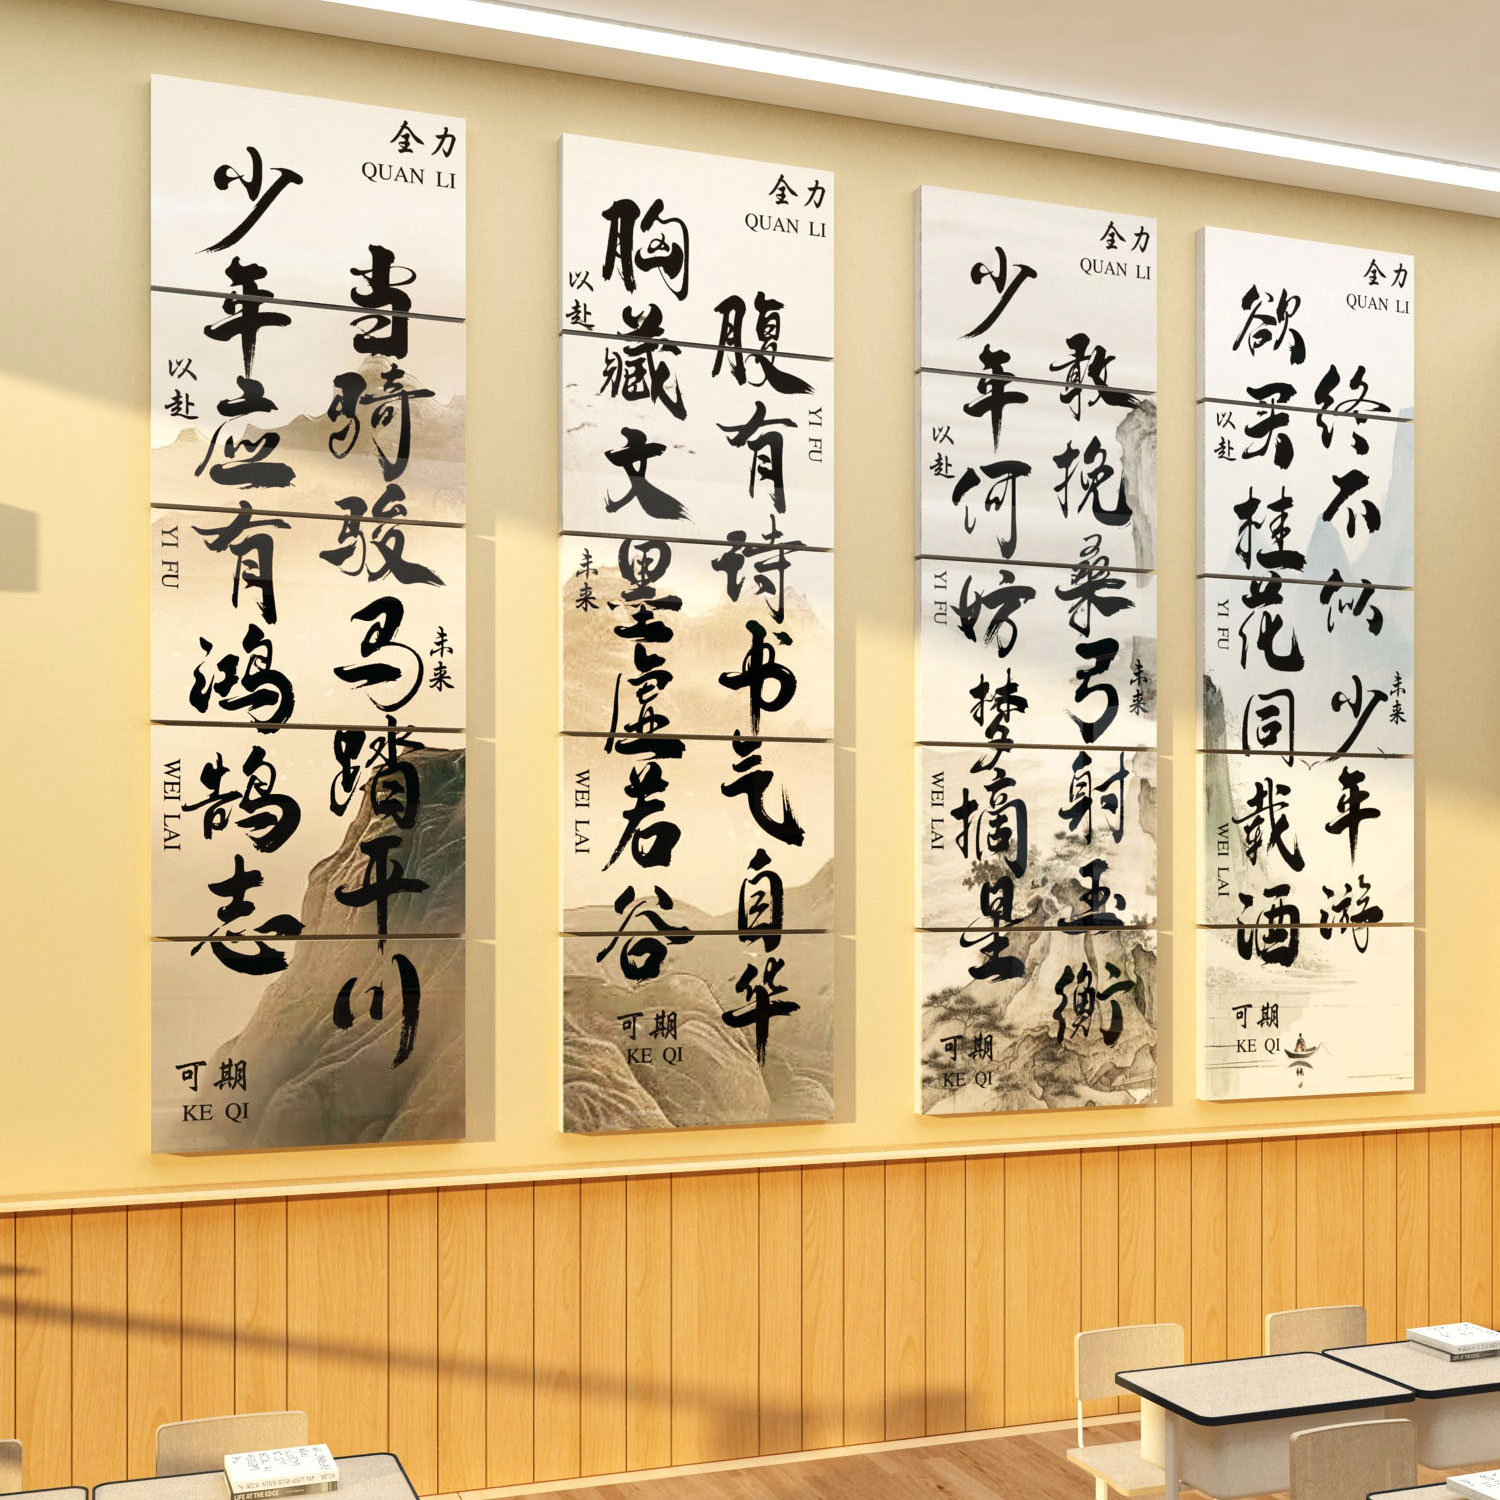 全力
QUAN LI
少年应有鸿鹄志
当骑骏马踏平川
以赴
YI FU
未来
WEI LAI
可期
KE QI
全力
QUAN LI
胸藏文墨虚若谷
腹有诗书气自华
以赴
YI FU
未来
WEI LAI
可期
KE QI
全力
QUAN LI
少年何妨梦摘星
敢挽桑弓射玉衡
以赴
YI FU
未来
WEI LAI
可期
KE QI
全力
QUAN LI
欲买桂花同载酒
终不似少年游
以赴
YI FU
未来
WEI LAI
可期
KE QI
LIFE AT THE EDGE
LIFE AT THE EDGE